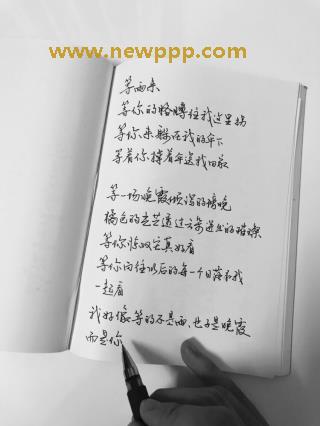 www.newppp.com
等雨来
等你的胳膊往我这里挡
等你来躲在我的伞下
等着你撑着伞送我回家
等一场晚霞倾泻的傍晚
橘色的光芒透过云朵进出的璀璨
等你惊叹它真好看
等你向往以后的每一个日落和我
一起看
我好像等的不是雨,也不是晚霞
而是你